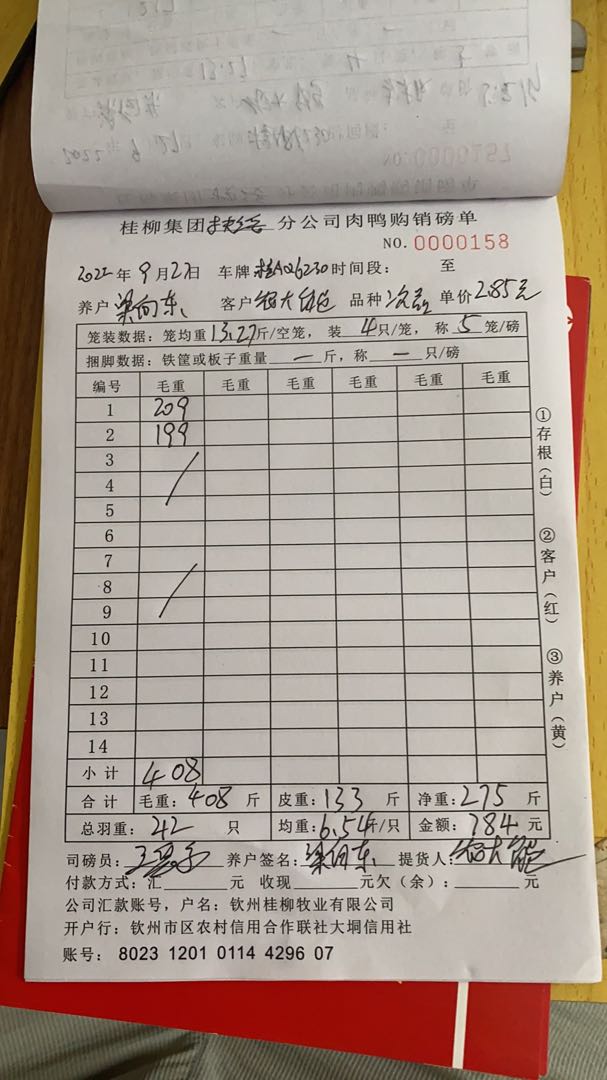 桂柳集团 分公司肉鸭购销磅单
NO. 0000158
2022年9月27日 车牌 桂A06230 时间段： 至
养户 梁向东 客户 品种 次品 单价 2.85元
笼装数据：笼均重 13.27 斤/空笼，装 4 只/笼，称 5 笼/磅
捆脚数据：铁筐或板子重量 — 斤，称 — 只/磅
编号 毛重 毛重 毛重 毛重 毛重 毛重
1 209
2 199
3
4
5
6
7
8
9
10
11
12
13
14
小计 408
合计 毛重：408 斤 皮重：133 斤 净重：275 斤
总羽重：42 只 均重：6.54斤/只 金额：784 元
司磅员： 养户签名：梁向东 提货人：
付款方式：汇 元 收现 元欠（余）： 元
公司汇款账号，户名：钦州桂柳牧业有限公司
开户行：钦州市区农村信用合作联社大垌信用社
账号： 8023 1201 0114 4296 07
①存根（白）
②客户（红）
③养户（黄）